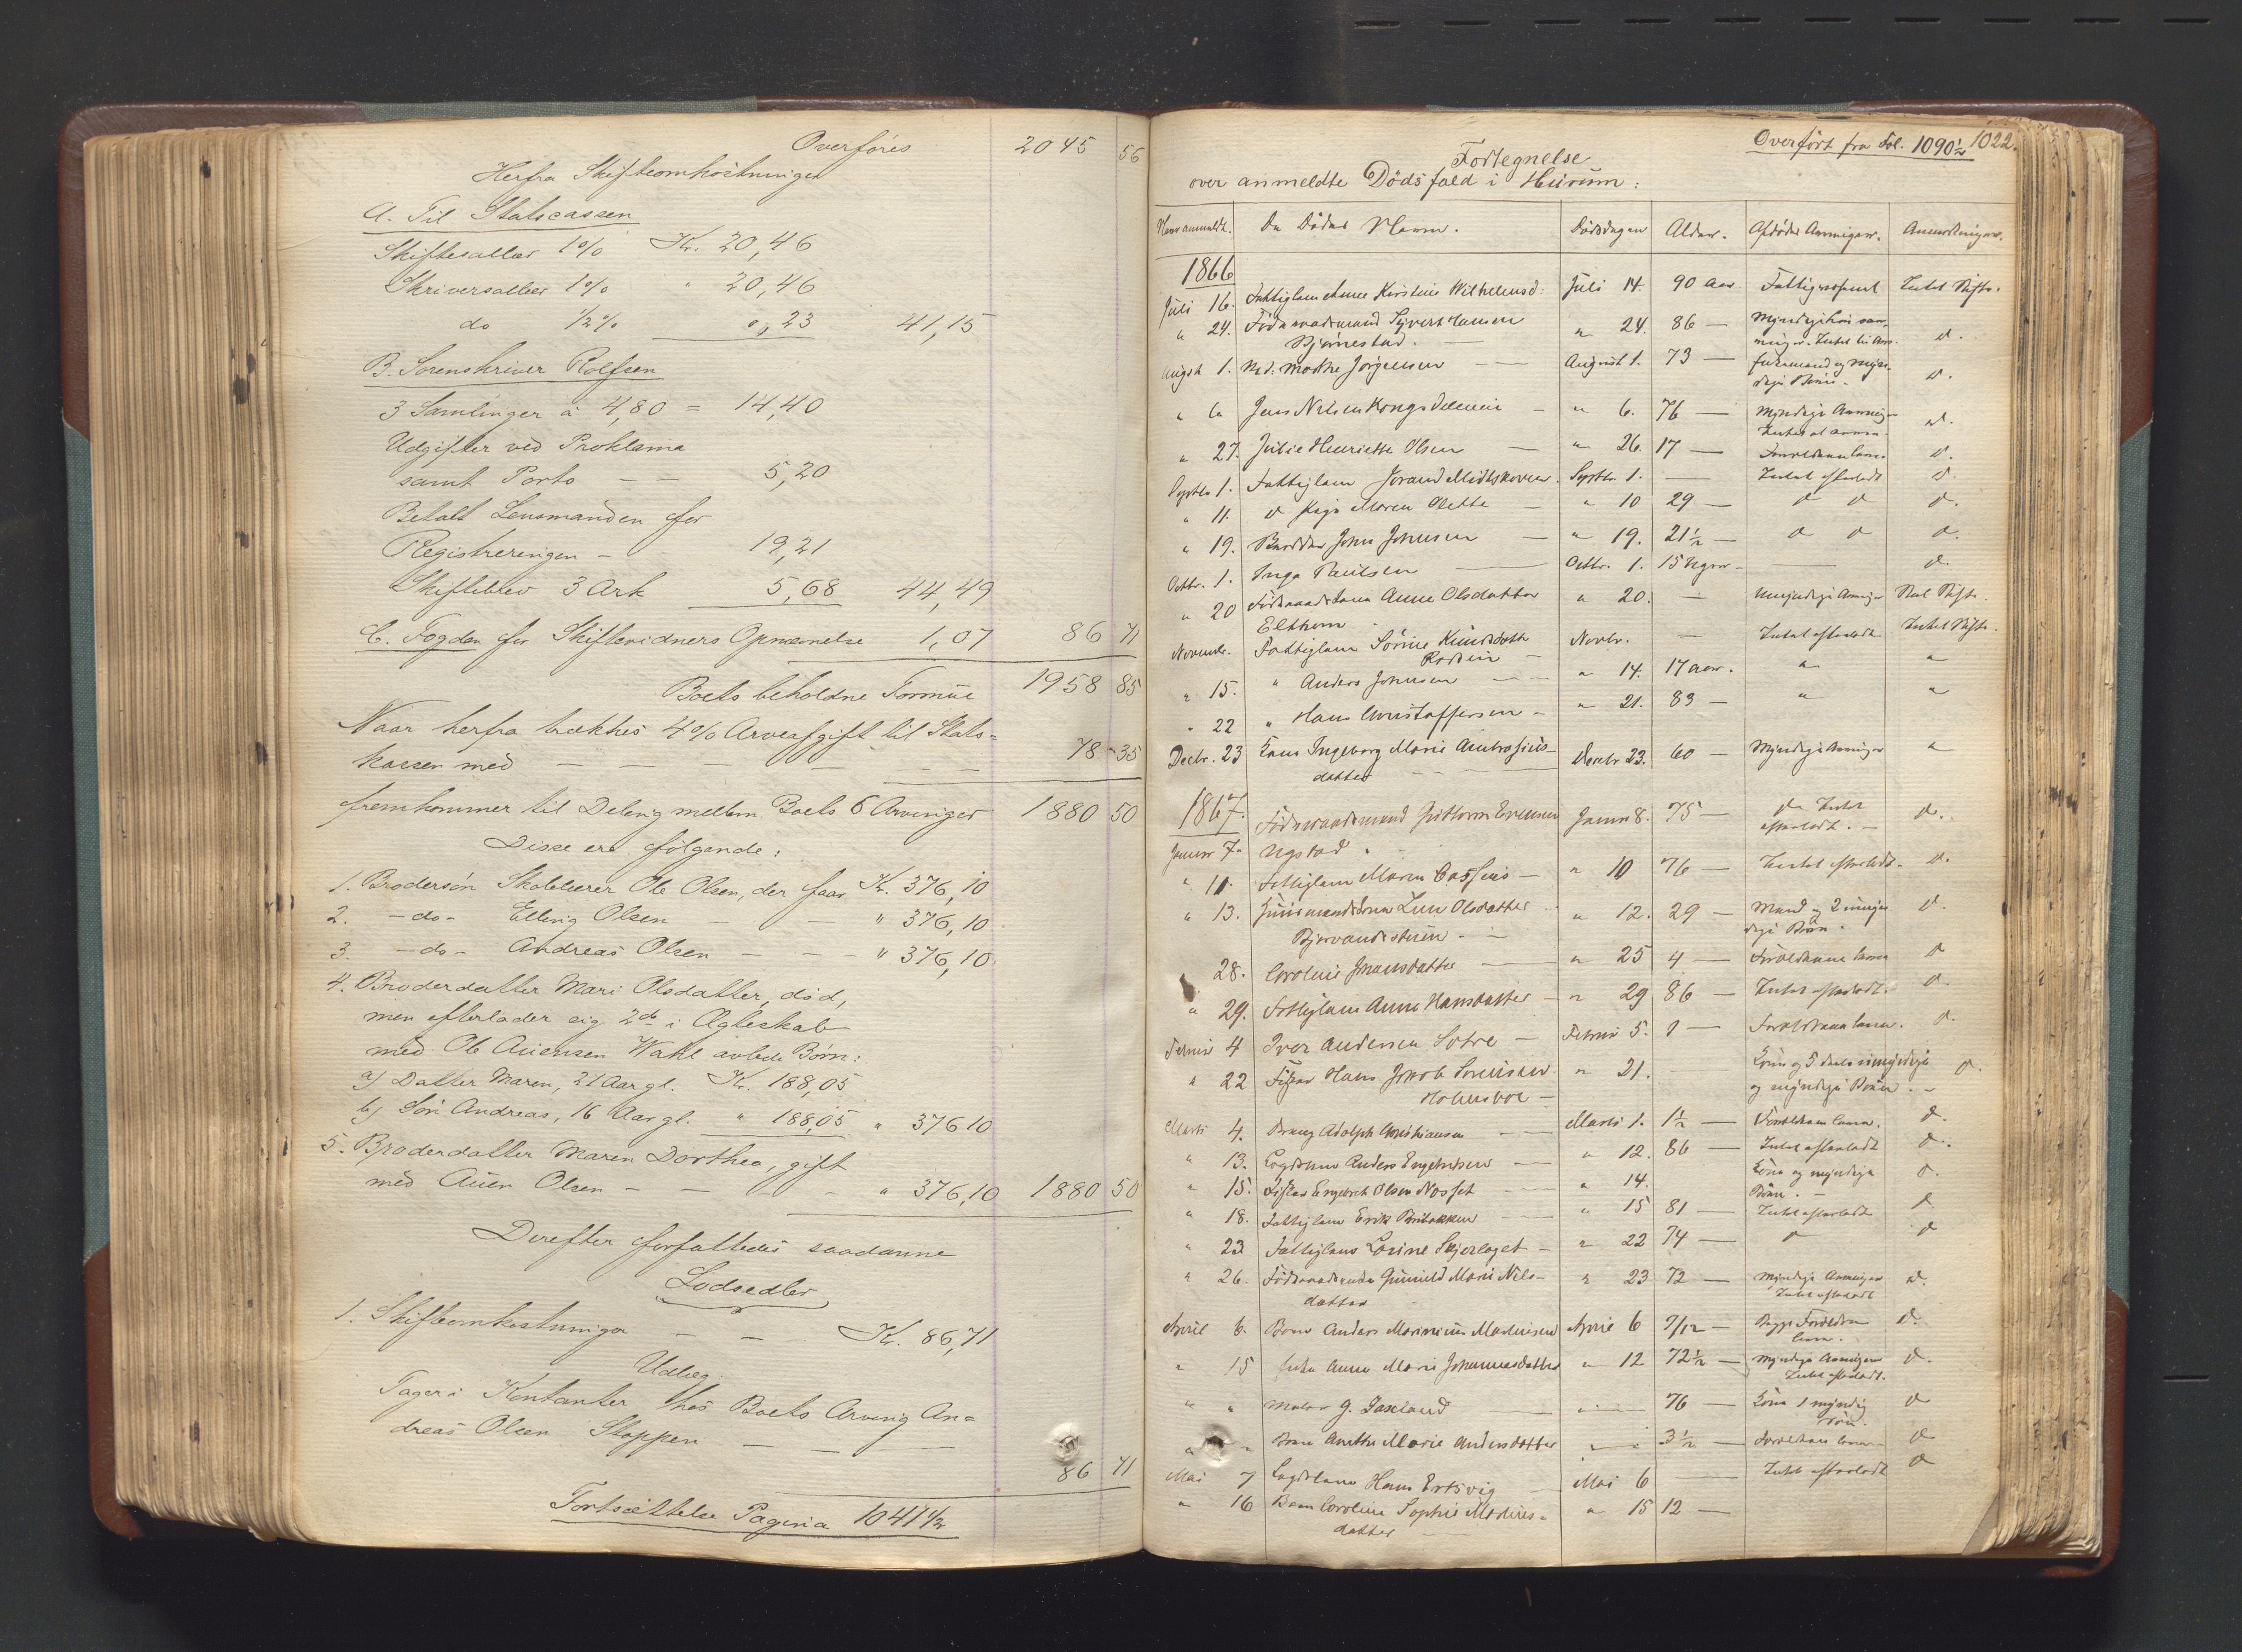 Overføres 2045 56
Herfra Skifteomkostninger
A. Til Statscassen
Skiftesallær 1% Kr. 20,46
Skriversallær 1% " 20,46
do ½% 0,23 41,15
B. Sorenskriver Rolfsen
3 Samlinger à 4,80 = 14,40
Udgifter ved Proklama
samt Porto — — 5,20
Betalt Lensmanden for
Registreringen – 19,21
Skiftebrev 3 Ark 5,68 44,49
C. Fogden for Skiftevidners Opnævnelse 1,07 86 71
Boets beholdne Formue 1958 85
Naar herfra trækkes 4% Arveafgift til Stats=
kassen med — — — — — 78 35
fremkommer til Deling mellem Boets 5 Arvinger 1880 50
Disse ere følgende:
1. Brodersøn Skolelærer Ole Olsen, der faar Kr. 376,10
2. –do– Elling Olsen — " 376,10
3. –do– Andreas Olsen — — – " 376,10
4. Broderdatter Mari Olsdatter, død,
men efterlader sig 2de i Ægteskab
med Ole Auensen Wahl avlede Børn:
a) Datter Maren, 21 Aar gl. Kr. 188,05
b) Søn Andreas, 16 Aar gl. " 188,05 " 376 10
5. Broderdatter Maren Dorthea, gift
med Auen Olsen – — – – " 376,10 1880 50
Derefter forfattedes saadanne
Lodsedler
1. Skifteomkostninger — — Kr. 86,71
Udlæg:
Tages i Kontanter hos Boets Arving An=
dreas Olsen Stoppen — — — —
86 71
Fortsættelse Pagina 1041½
Overført fra Fol. 1090½ 1022.
Fortegnelse
over anmeldte Dødsfald i Hurum:
Naar anmeldt. De Dødes Navn. Dødsdagen Alder. Afdødes Arvinger. Anmerkninger.
1866
Juli 16. Fattiglem Anne Kirstine Wilhelmsd: Juli 14. 90 Aar Intet Skifte.
" 24. Føderaadsmand Syvert Hansen " 24. 86 —
Bjørnestad. d.
Augst 1. Jørgensen — August 1. 73 —
d.
" 6 Jens Nilsen Kongsdelene — " 6. 76 — Myndige Arvinger d.
" 27. Julie Henriette Olsen — " 26. 17 — d.
Septbr 1. Fattiglem Jorand Midtskoven Septbr. 1. — Intet efterladt d.
" 11. d Pige Maren Olette — " 10 29 — d d d.
" 19. John Johnsen — " 19. 21½ — d d d.
Octbr. 1. Inga Paulsen — Octbr. 1. 15 Uger — d.
" 20 Anne Olsdatter " 20. — Umyndige Arvinger
Novembr. Fattiglem Sørine Knudsdatter Novbr. — Intet efterladt Intet Skifte.
" 15. " Anders Johnsen — " 14. 17 aar. " "
" 22 " Hans Christoffersen – " 21. 83 – " "
Decbr. 23 Kone Ingeborg Marie Ambrosius- Decbr 23. 60 — Myndige Arvinger "
datter
1867.
Januar 7. Føderaadsmand Guttorm Evensen Januar 8. 75 — do Intet d.
efterladt. —
" 11. Fattiglem Maren Cassius — " 10 76 — Intet efterladt d.
" 13. Lene Olsdatter " 12. 29 — Mand og 2 umyn- d.
dige Børn.
" 28. Caroline Jnansdatter — " 25 4 — d
" 29. Fattiglem Anne Hansdatter — " 29 86 — Intet efterladt. d.
Februar 4 Iver Andersen Sotre — Februar 5. d.
" 22 Hans Jakob " 21. Kone og 5 dels umyndige d.
Holmsboe — og myndige Børn. –
Marts 4. Adolph Christiansen — Marts 1. 1½ — d.
" 13. Anders — " 12. 86 — Intet efterladt d.
" 15. Engebret Olsen — " 14. Kone og myndige d.
Børn. —
" 18. Fattiglem Erik — " 15 81 — Intet efterladt d
" 23 Fattiglem — " 22 74 — d d
" 26. Gunild Marie Nils- " 23 72 — Myndige Arvinger d.
datter Intet efterladt
April 6. Barn Anders Marinius April 6 7/12 — d.
" 15 Enke Anne Marie Johannesdatter " 12 72½ — Myndige Arvinger d.
Intet efterladt.
" " Maler G. — 76 — Kone 1 myndig d
Søn.
Barn Anethe Marie Andersdatter 3½ — d
Mai 7 Hans Ertsvig Mai 6 — Intet efterladt d
" 16 Barn Caroline Sophie " 15 12 —
datter